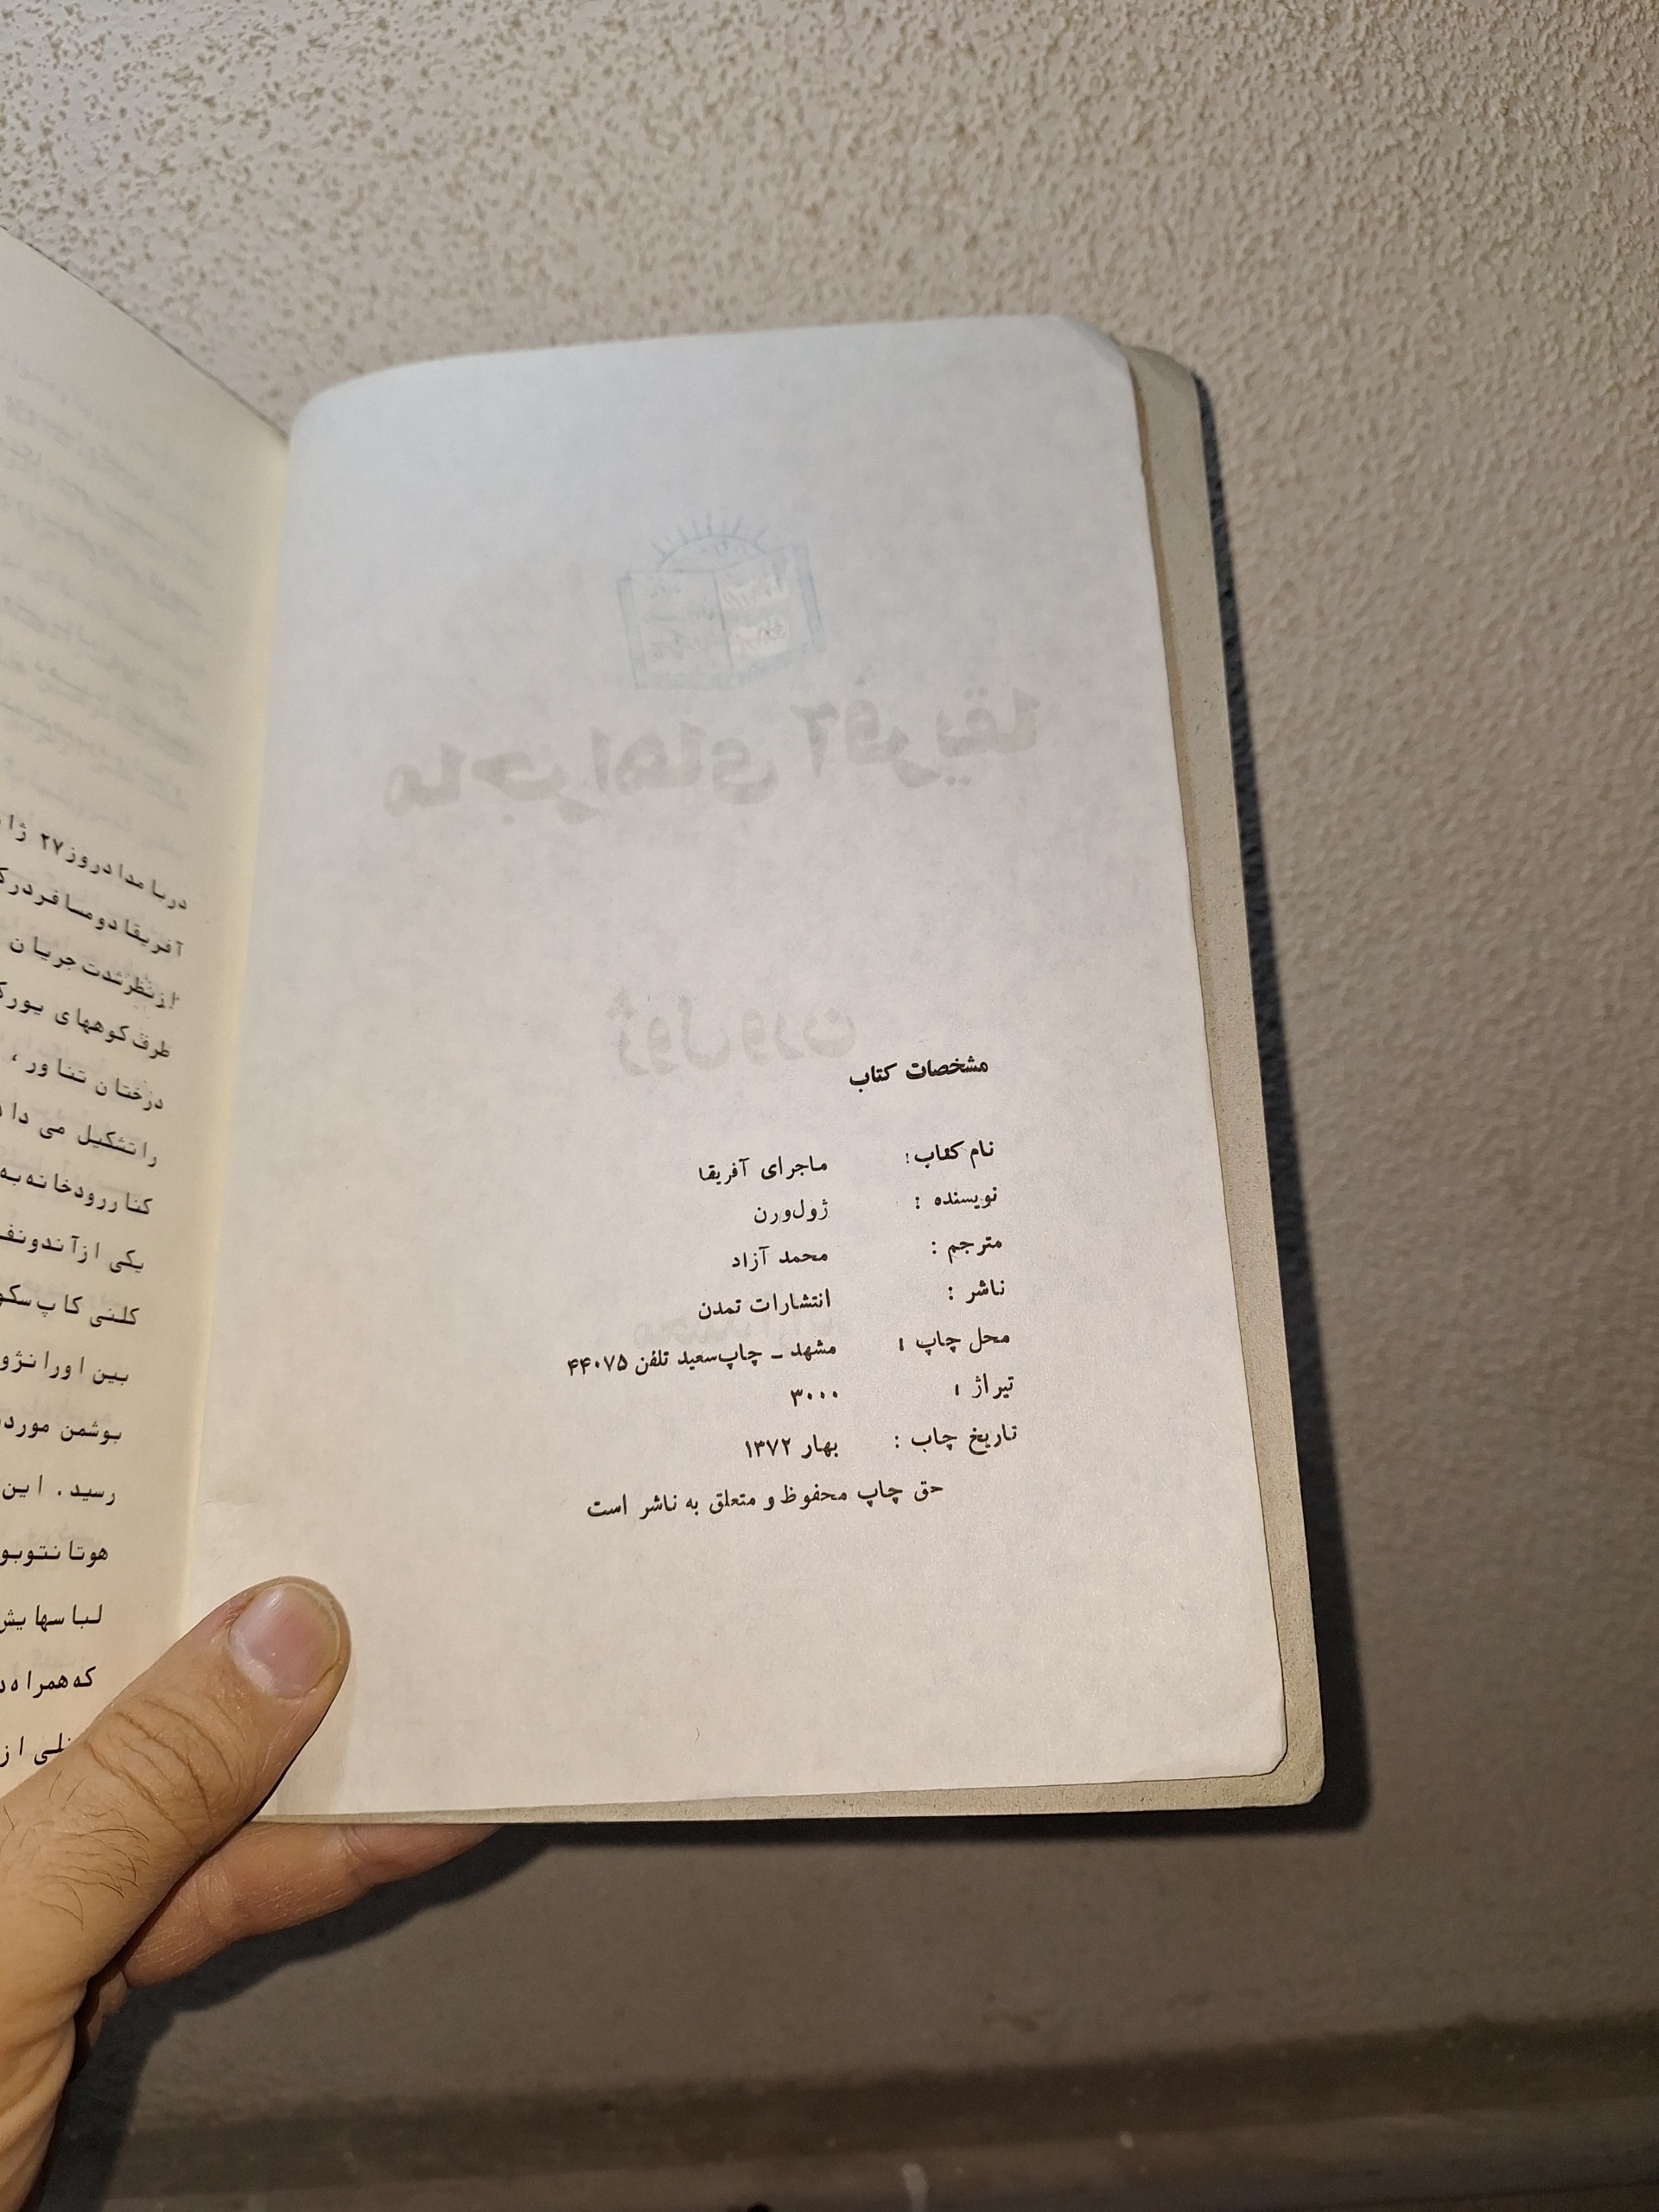 مشخصات کتاب
نام کتاب: ماجرای آفریقا
نویسنده : ژول‌ورن
مترجم : محمد آزاد
ناشر : انتشارات تمدن
محل چاپ : مشهد ـ چاپ‌سعید تلفن ۴۴۰۷۵
تیراژ : ۳۰۰۰
تاریخ چاپ : بهار ۱۳۷۲
حق چاپ محفوظ و متعلق به ناشر است
ماجراهای آفریقا
ژول‌ورن
دربامداد روز ۲۷
آفریقا دومسافر
ازنظرشدت جریان
طرف کوههای
درختان تناور ،
راتشکیل می
کناررودخانه به
یکی ازآندونفر
کلنی کاپ
بین اورانژ
بوشمن مورد
رسید . این
لباسهایش
که همراه